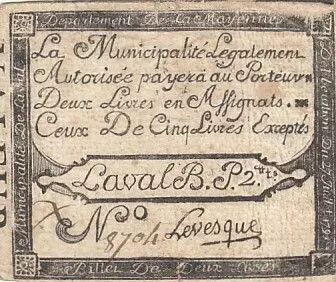 Departement De La Mayenne
La Municipalité Legalement
Autorisée payera au Porteur
Deux Livres en Assignats.
Ceux De Cinq Livres Exceptés
Laval B. P. 2.tt
N.o 8704 Levesque
Billet De Deux Livres
Municipalité De Laval